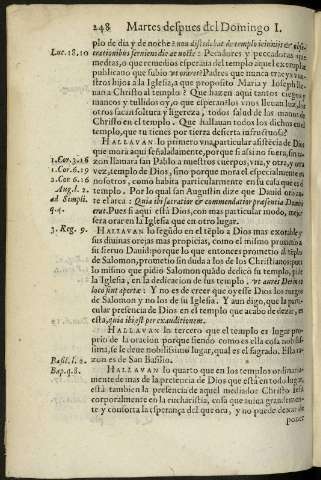 248 Martes despues del Domingo I.
plo de dia y de noche: non discedebat de templo ieiunijs & obse
Luc. 18.10 crationibus seruiens die ac nocte? Pecadores y peccadoras que
medras, o que remedios esperais del templo aquel exemplar
publicano que subio vt oraret? Padres que nunca traeys vue
stros hijos a la Iglesia, a que proposito Maria y Ioseph lle-
nan a Christo al templo? Que hazen aqui tantos ciegos y
mancos y tullidos oy, o que esperan? los vnos lleuan luz, los
otros sacan soltura y ligereza, y todos salud de las manos de
Christo en el templo. Que hallauan todos los dichos en el
templo, que tu tienes por tierra desierta infructuosa?
HALLAVAN lo primero vna particular asistēcia de Dios
que mora aqui señaladamente, porque si assi no fuera, sin ra-
1. Cor. 3.16 zon llamara san Pablo a nuestros cuerpos, vna, y otra, y otra
1. Cor. 6.19 vez, templo de Dios, sino porque mora el especialmente en
2. Cor. 6.16 nosotros, como habita particularmente en su casa que es el
Aug. l. 2. templo. Por lo qual san Augustin dize que Dauid oraua an
ad Simpli. te el arca: Quia ibi sacratior & commendatior præsentia Domini
q. 4. erat. Pues si aqui està Dios, con mas particular modo, mejor
sera orar en la Iglesia, que en otro lugar.
3. Reg. 9. HALLAVAN lo segūdo en el tēplo a Dios mas exorable y
sus diuinas orejas mas propicias, como el mismo prometio a
su sieruo Dauid: porque lo que entonces prometio al tēplo
de Salomon, prometio sin duda a los de los Christianos: pues
lo mismo que pidio Salomon quādo dedicó su templo, pide
la Iglesia, en la dedicacion de los suyos, vt aures Dei
ad
isto sint aperta: Y no es de creer que oyesse Dios los ruegos
de Salomon y no los de su Iglesia. Y aun digo, que la parti-
cular presencia de Dios en el templo que acabo de dezir, es
esta, quia ibi est per exauditionem.
HALLAVAN lo tercero que el templo es lugar pro-
prio de la oracion porque siendo como es ella cosa nobilis-
sima, se le deue nobilissimo lugar, qual es el sagrado. Esta ra-
Basil. l. 2. zon es de San Basilio.
Bap. q. 8. HALLAVAN lo quarto que en los templos ordinaria-
mente de mas de la presencia de Dios que està en todo lugar,
està tambien la presencia de aquel mediador Christo Iesu
corporalmente en la eucharistia, cosa que auiua grandemen-
te y conforta la esperança del que ora, y no puede dexar de
poner